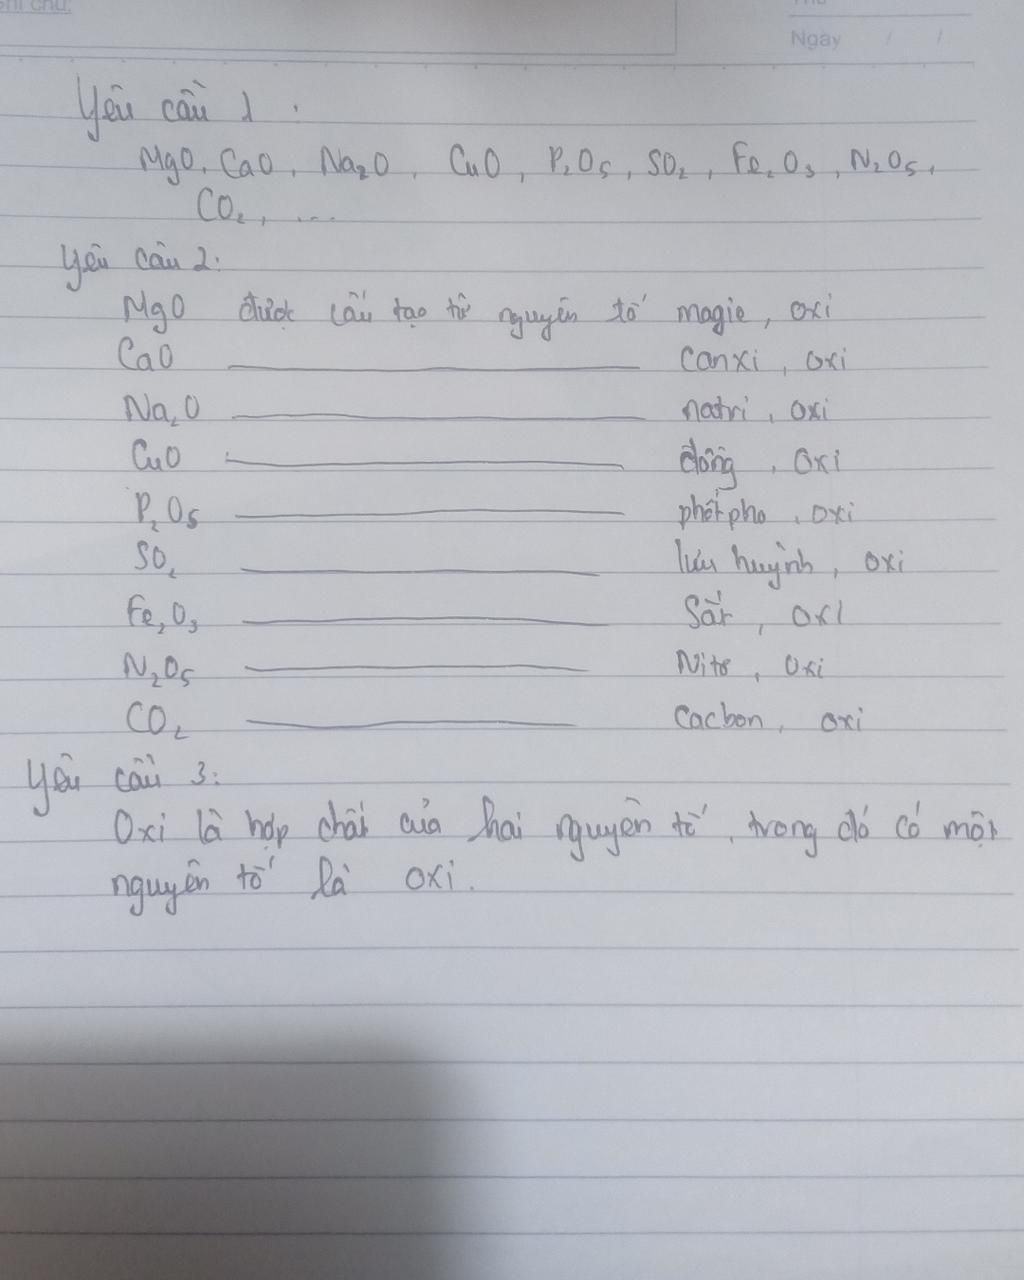 Ghi chú:
Thứ
Ngày / /
Yêu cầu 1:
MgO, CaO, Na₂O, CuO, P₂O₅, SO₂, Fe₂O₃, N₂O₅,
CO₂, ...
Yêu cầu 2:
MgO được cấu tạo từ nguyên tố magie, oxi
CaO ——— canxi, oxi
Na₂O ——— natri, oxi
CuO ——— đồng, oxi
P₂O₅ ——— phốtpho, oxi
SO₂ ——— lưu huỳnh, oxi
Fe₂O₃ ——— Sắt, oxi
N₂O₅ ——— Nitơ, oxi
CO₂ ——— cacbon, oxi
Yêu cầu 3:
Oxi là hợp chất của hai nguyên tố, trong đó có một
nguyên tố là oxi.